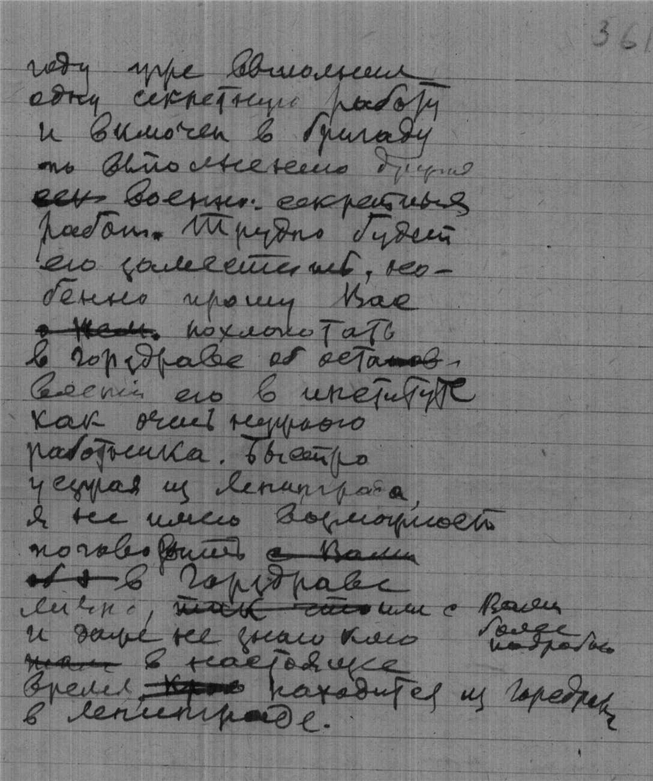 361
году уже выполнил
одну секретную работу
и включен в бригаду
по выполнению других
сек военно-секретных
работ. Трудно будет
его заместить, осо-
бенно прошу Вас
о нем. похлопотать
в горздраве об остав-
влении его в институте
как очень нужного
работника. Быстро
уезжая из Ленинграда,
я не имею возможность
поговорить с Вами
в Горздраве
лично, так что или с Вами
и даже не знаю кто более подробно
в настоящее
время находится из горздрава
в Ленинграде.